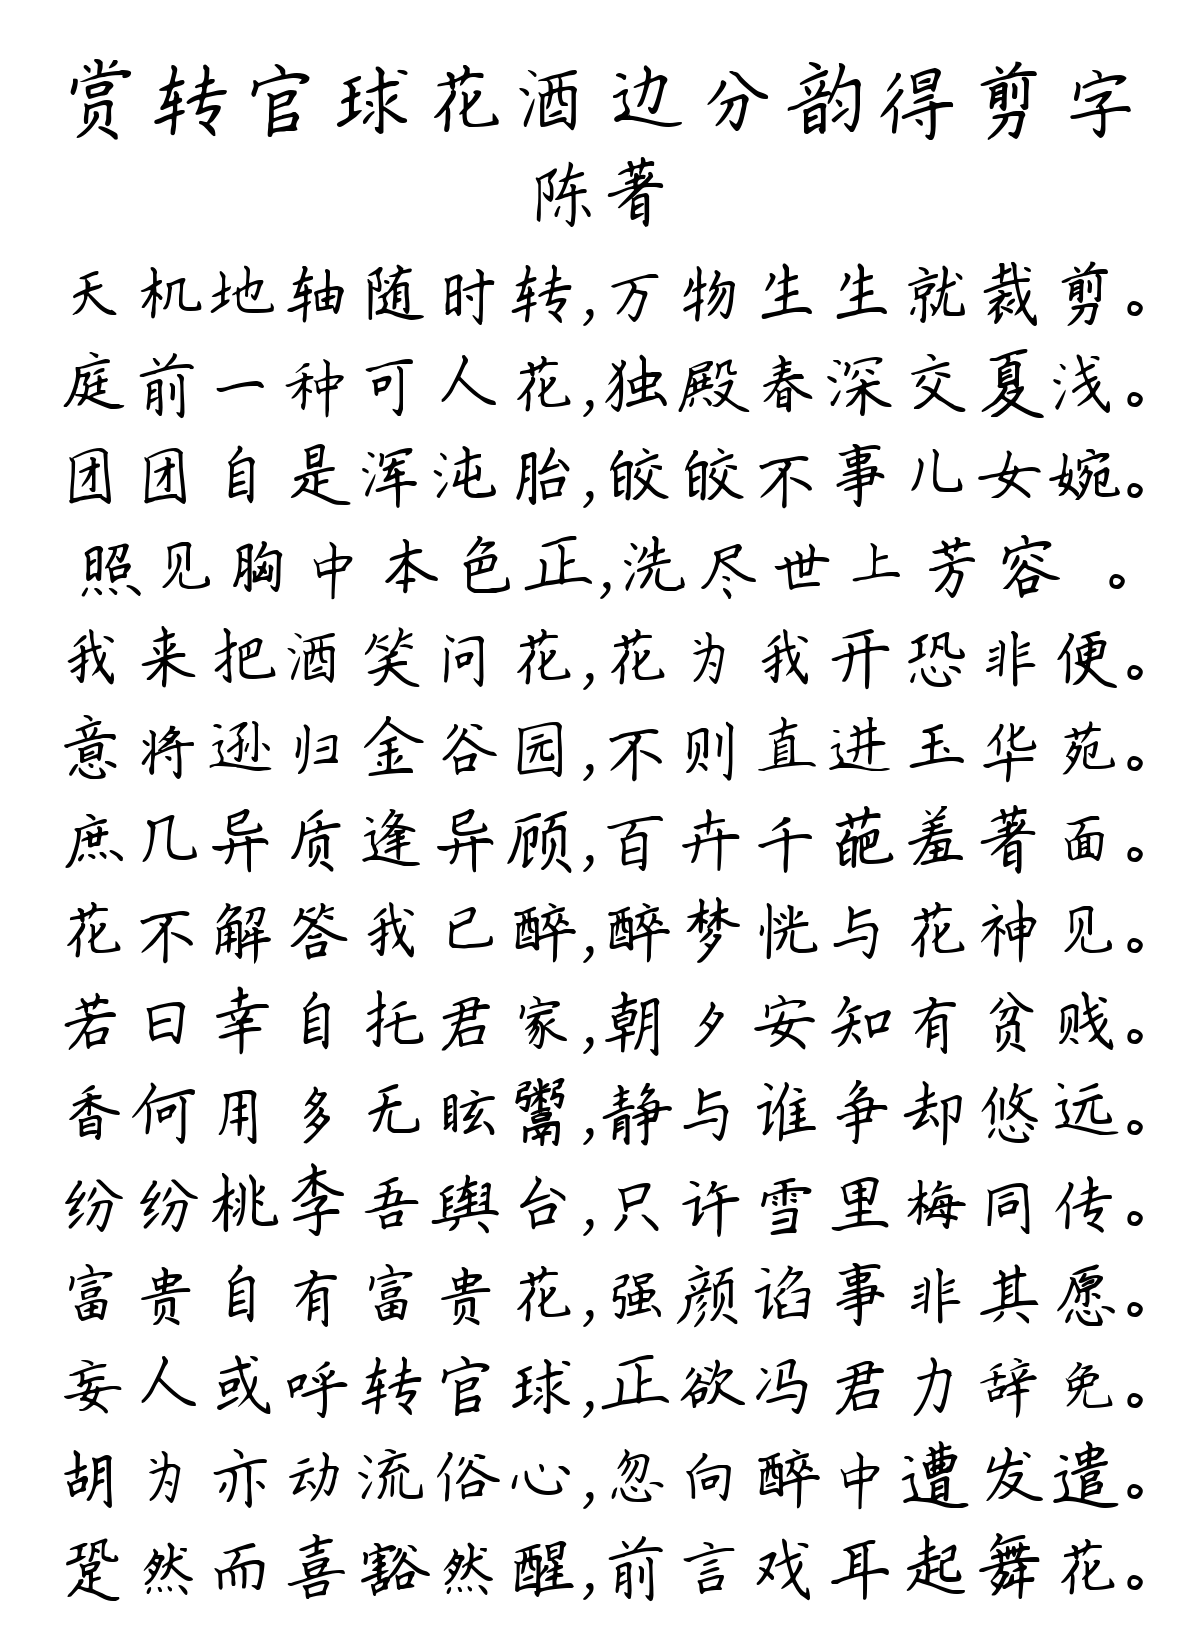 赏转官球花酒边分韵得剪字
陈著
天机地轴随时转,万物生生就裁剪。
庭前一种可人花,独殿春深交夏浅。
团团自是浑沌胎,皎皎不事儿女婉。
照见胸中本色正,洗尽世上芳容 。
我来把酒笑问花,花为我开恐非便。
意将逊归金谷园,不则直进玉华苑。
庶几异质逢异顾,百卉千葩羞著面。
花不解答我已醉,醉梦恍与花神见。
若曰幸自托君家,朝夕安知有贫贱。
香何用多无眩鬻,静与谁争却悠远。
纷纷桃李吾舆台,只许雪里梅同传。
富贵自有富贵花,强颜谄事非其愿。
妄人或呼转官球,正欲冯君力辞免。
胡为亦动流俗心,忽向醉中遭发遣。
跫然而喜豁然醒,前言戏耳起舞花。